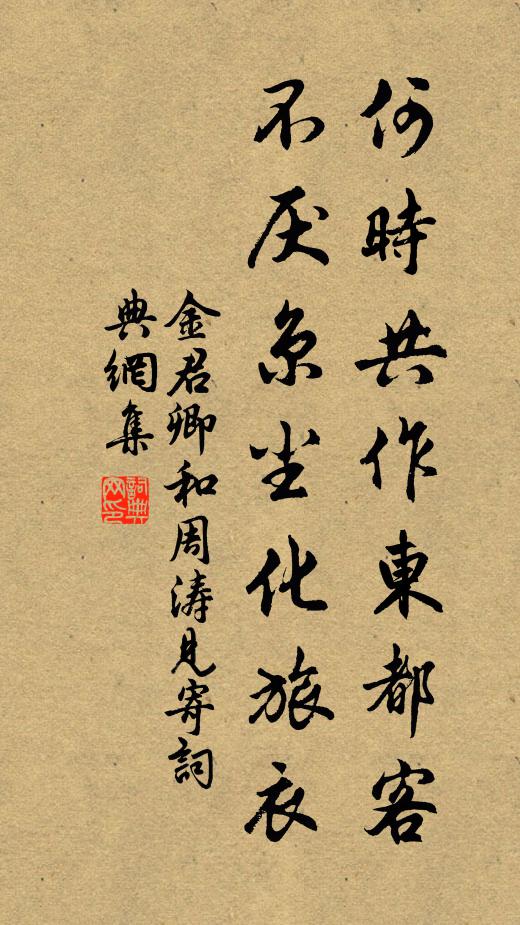 何時共作東都客
不厌京尘化旅衣
金君卿和周濤見寄詞
典網集
詞典网印